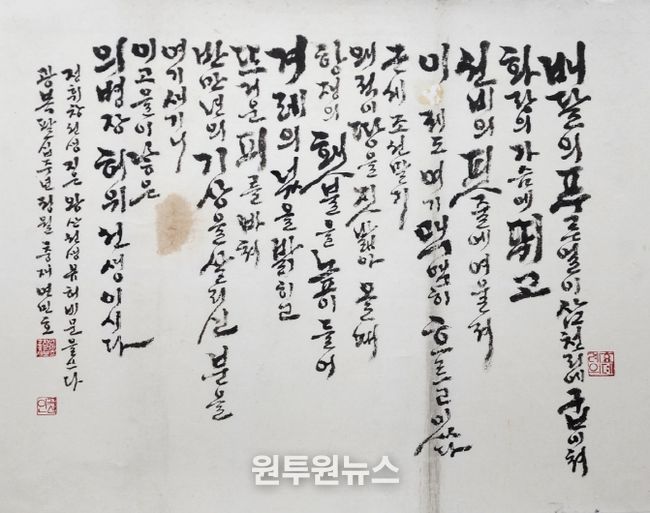 배달의 푸른얼이 삼천리에 굽이쳐
화랑의 가슴에 뛰고
선비의 핏줄에 여울져
이제도 여기 맥맥히 흐르고 있다
근세 조선말기
왜적이 땅을 짓밟아 올 때
항쟁의 횃불을 높이 들어
겨레의 넋을 밝히고
뜨거운 피를 바쳐
반만년의 기상을 살리신 분을
여기 새기니
이 고을이 낳은
의병장 허위선생이시다
정휘창선생 지은 왕산선생 유허비문을 쓰다
광복팔십주년 정월 중재 변민호
원투원뉴스